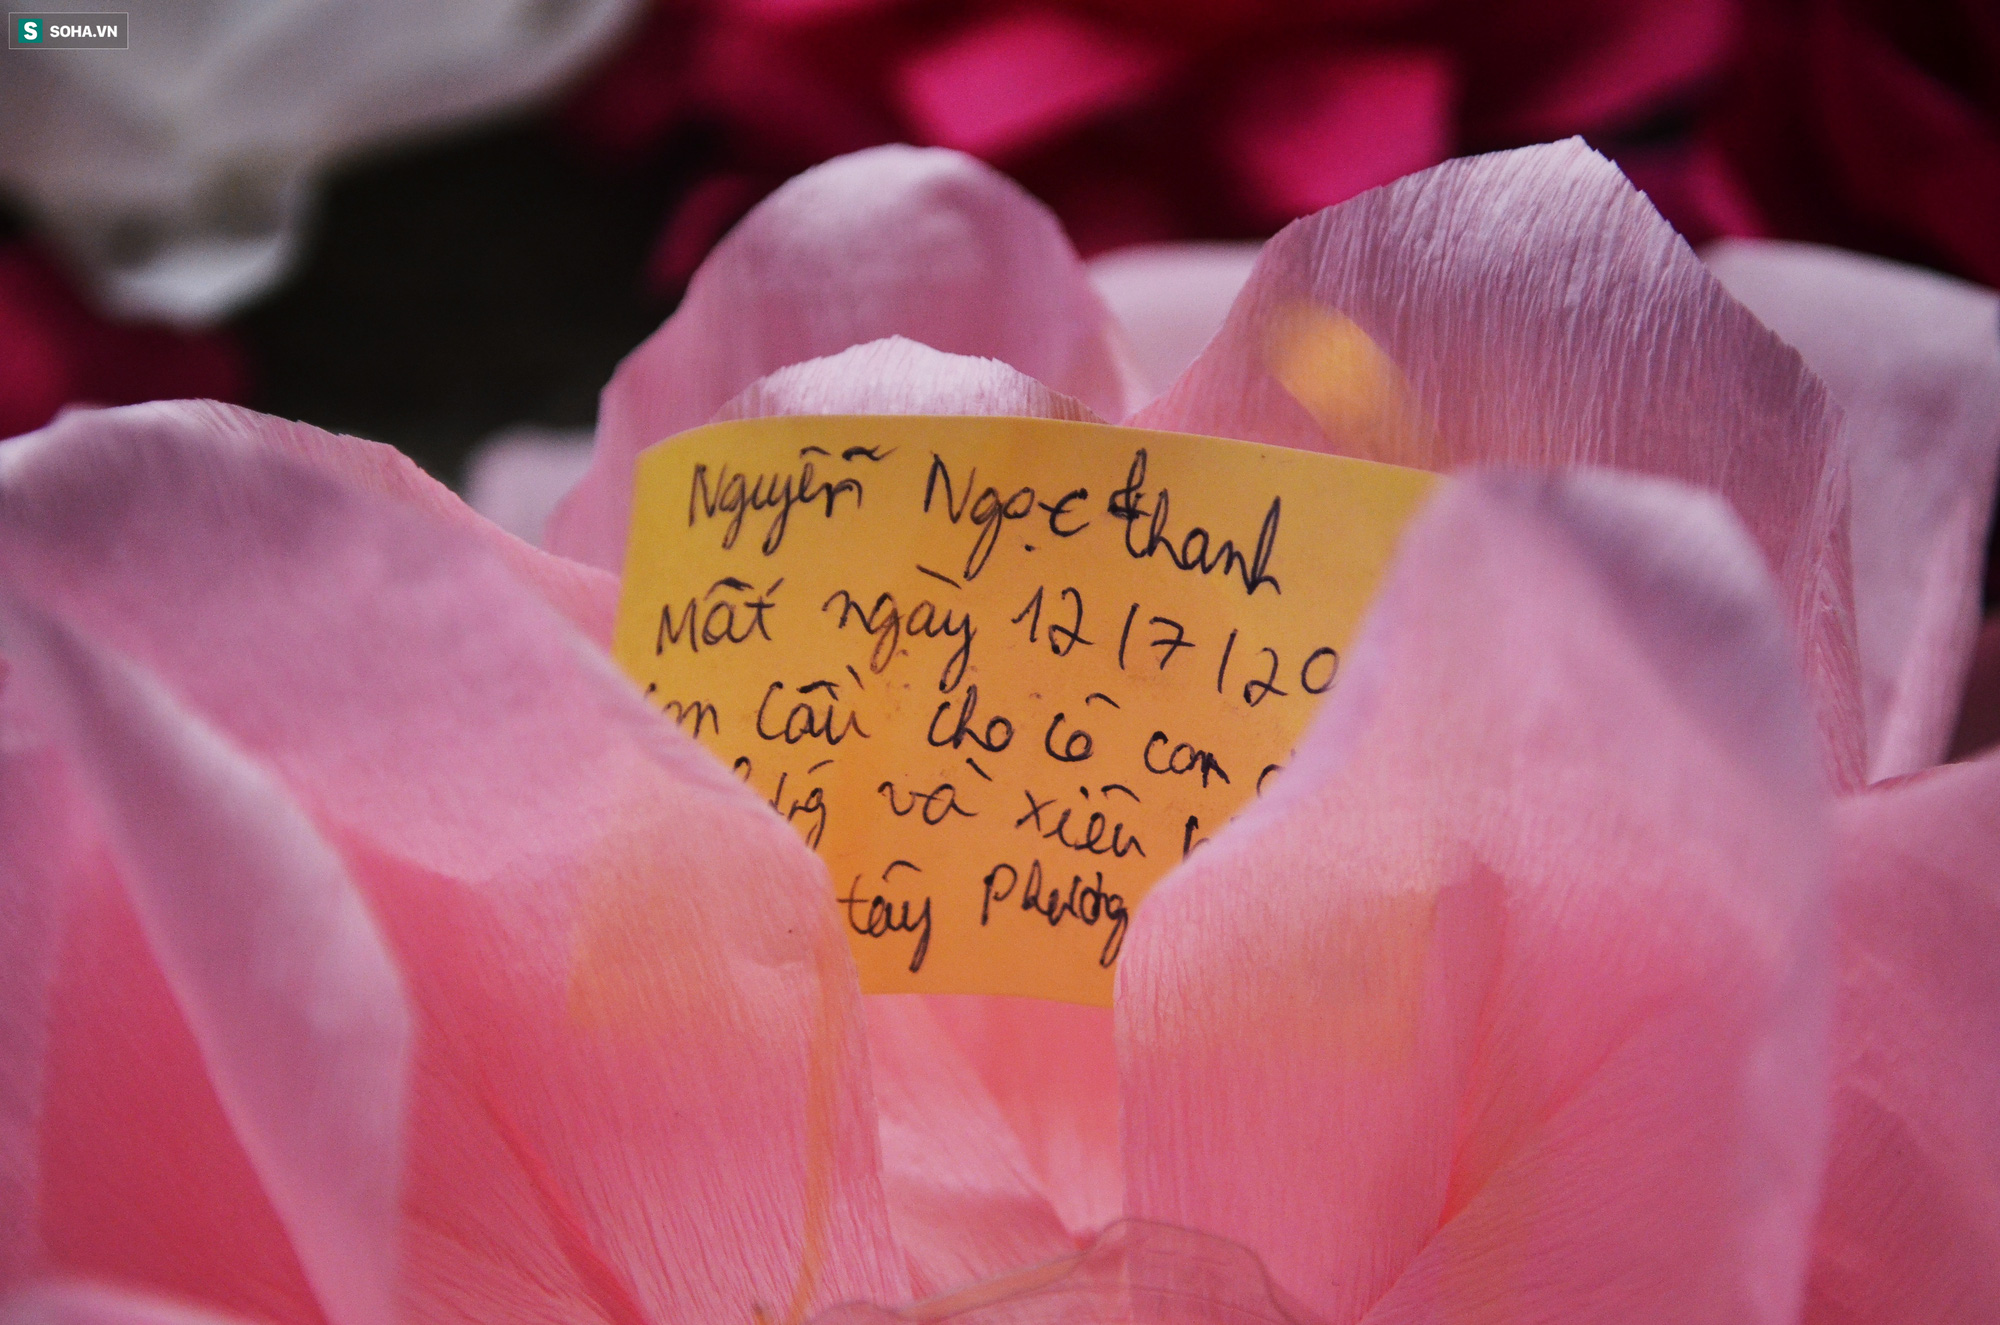 SOHA.VN
Nguyễn Ngọc thanh
Mất ngày 12/7/20
Cầu cho cô con
và xiêu
tây Phương